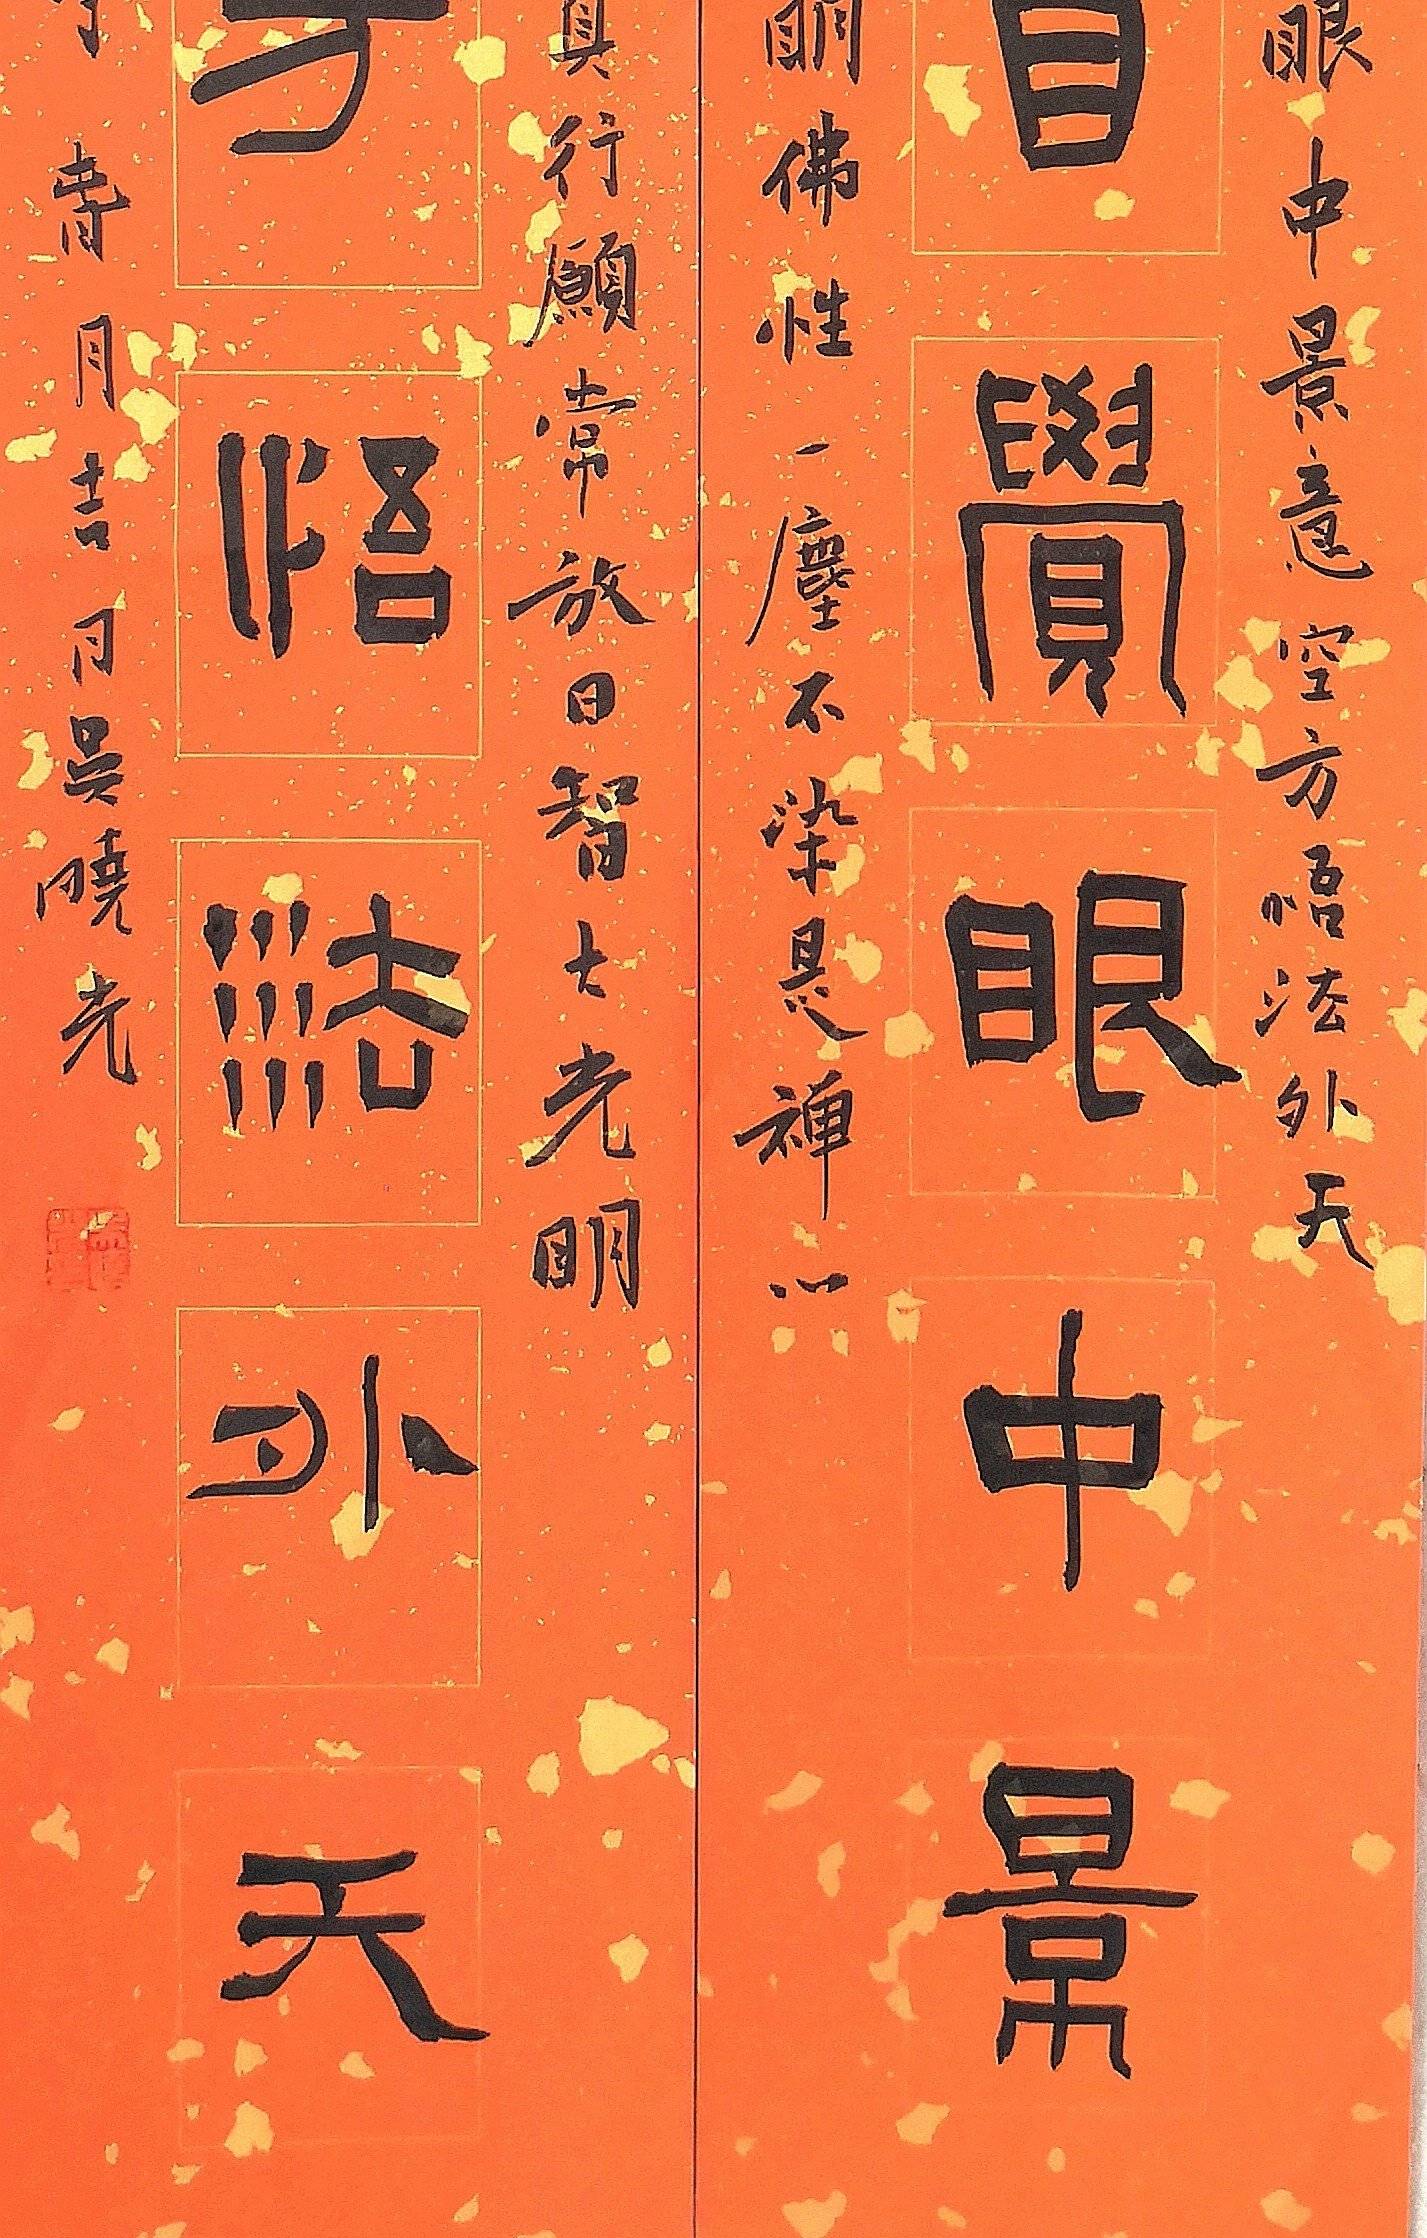 眼中景意空方悟法外天
自覺眼中景
明佛性一塵不染是禪心
真行願常放日智大光明
方悟法外天
月吉日吳曉光